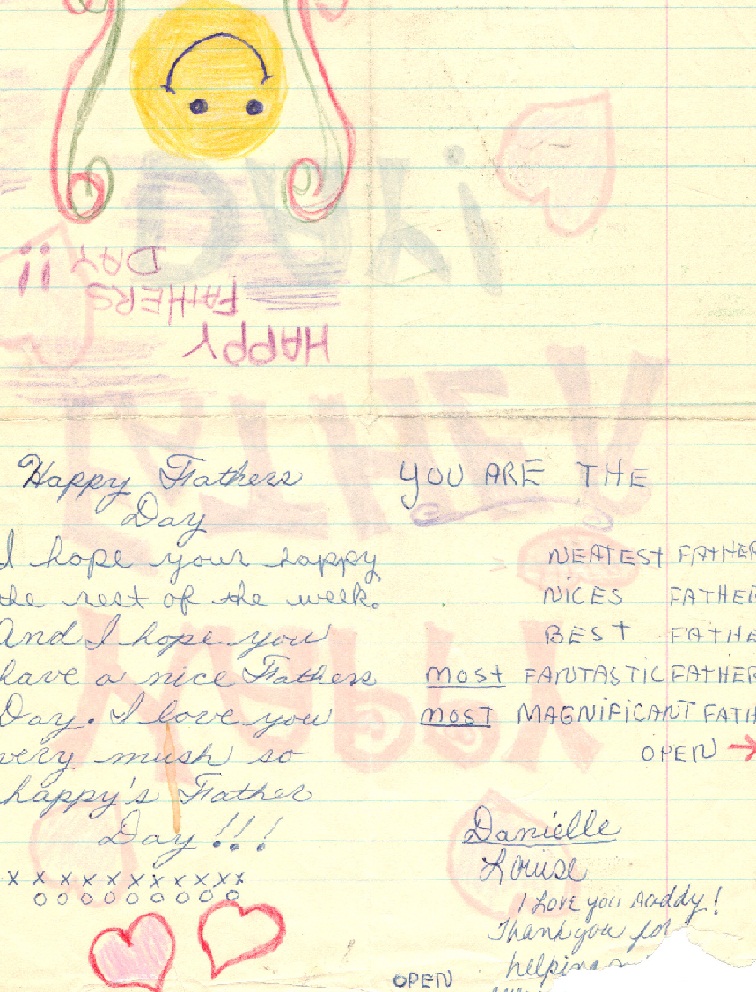 HAPPY
FATHERS
DAY !!
Happy Fathers
Day
I hope your happy
the rest of the week.
And I hope you
have a nice Fathers
Day. I love you
very mush so
happy's Father
Day!!!
x x x x x x x x x x x
o o o o o o o o o
YOU ARE THE
NEATEST FATHER
NICES FATHER
BEST FATHE
most FANTASTIC FATHER
most MAGNIFICANT FATH
OPEN →
Danielle
Louise
I Love you daddy!
Thank you for
helping
OPEN